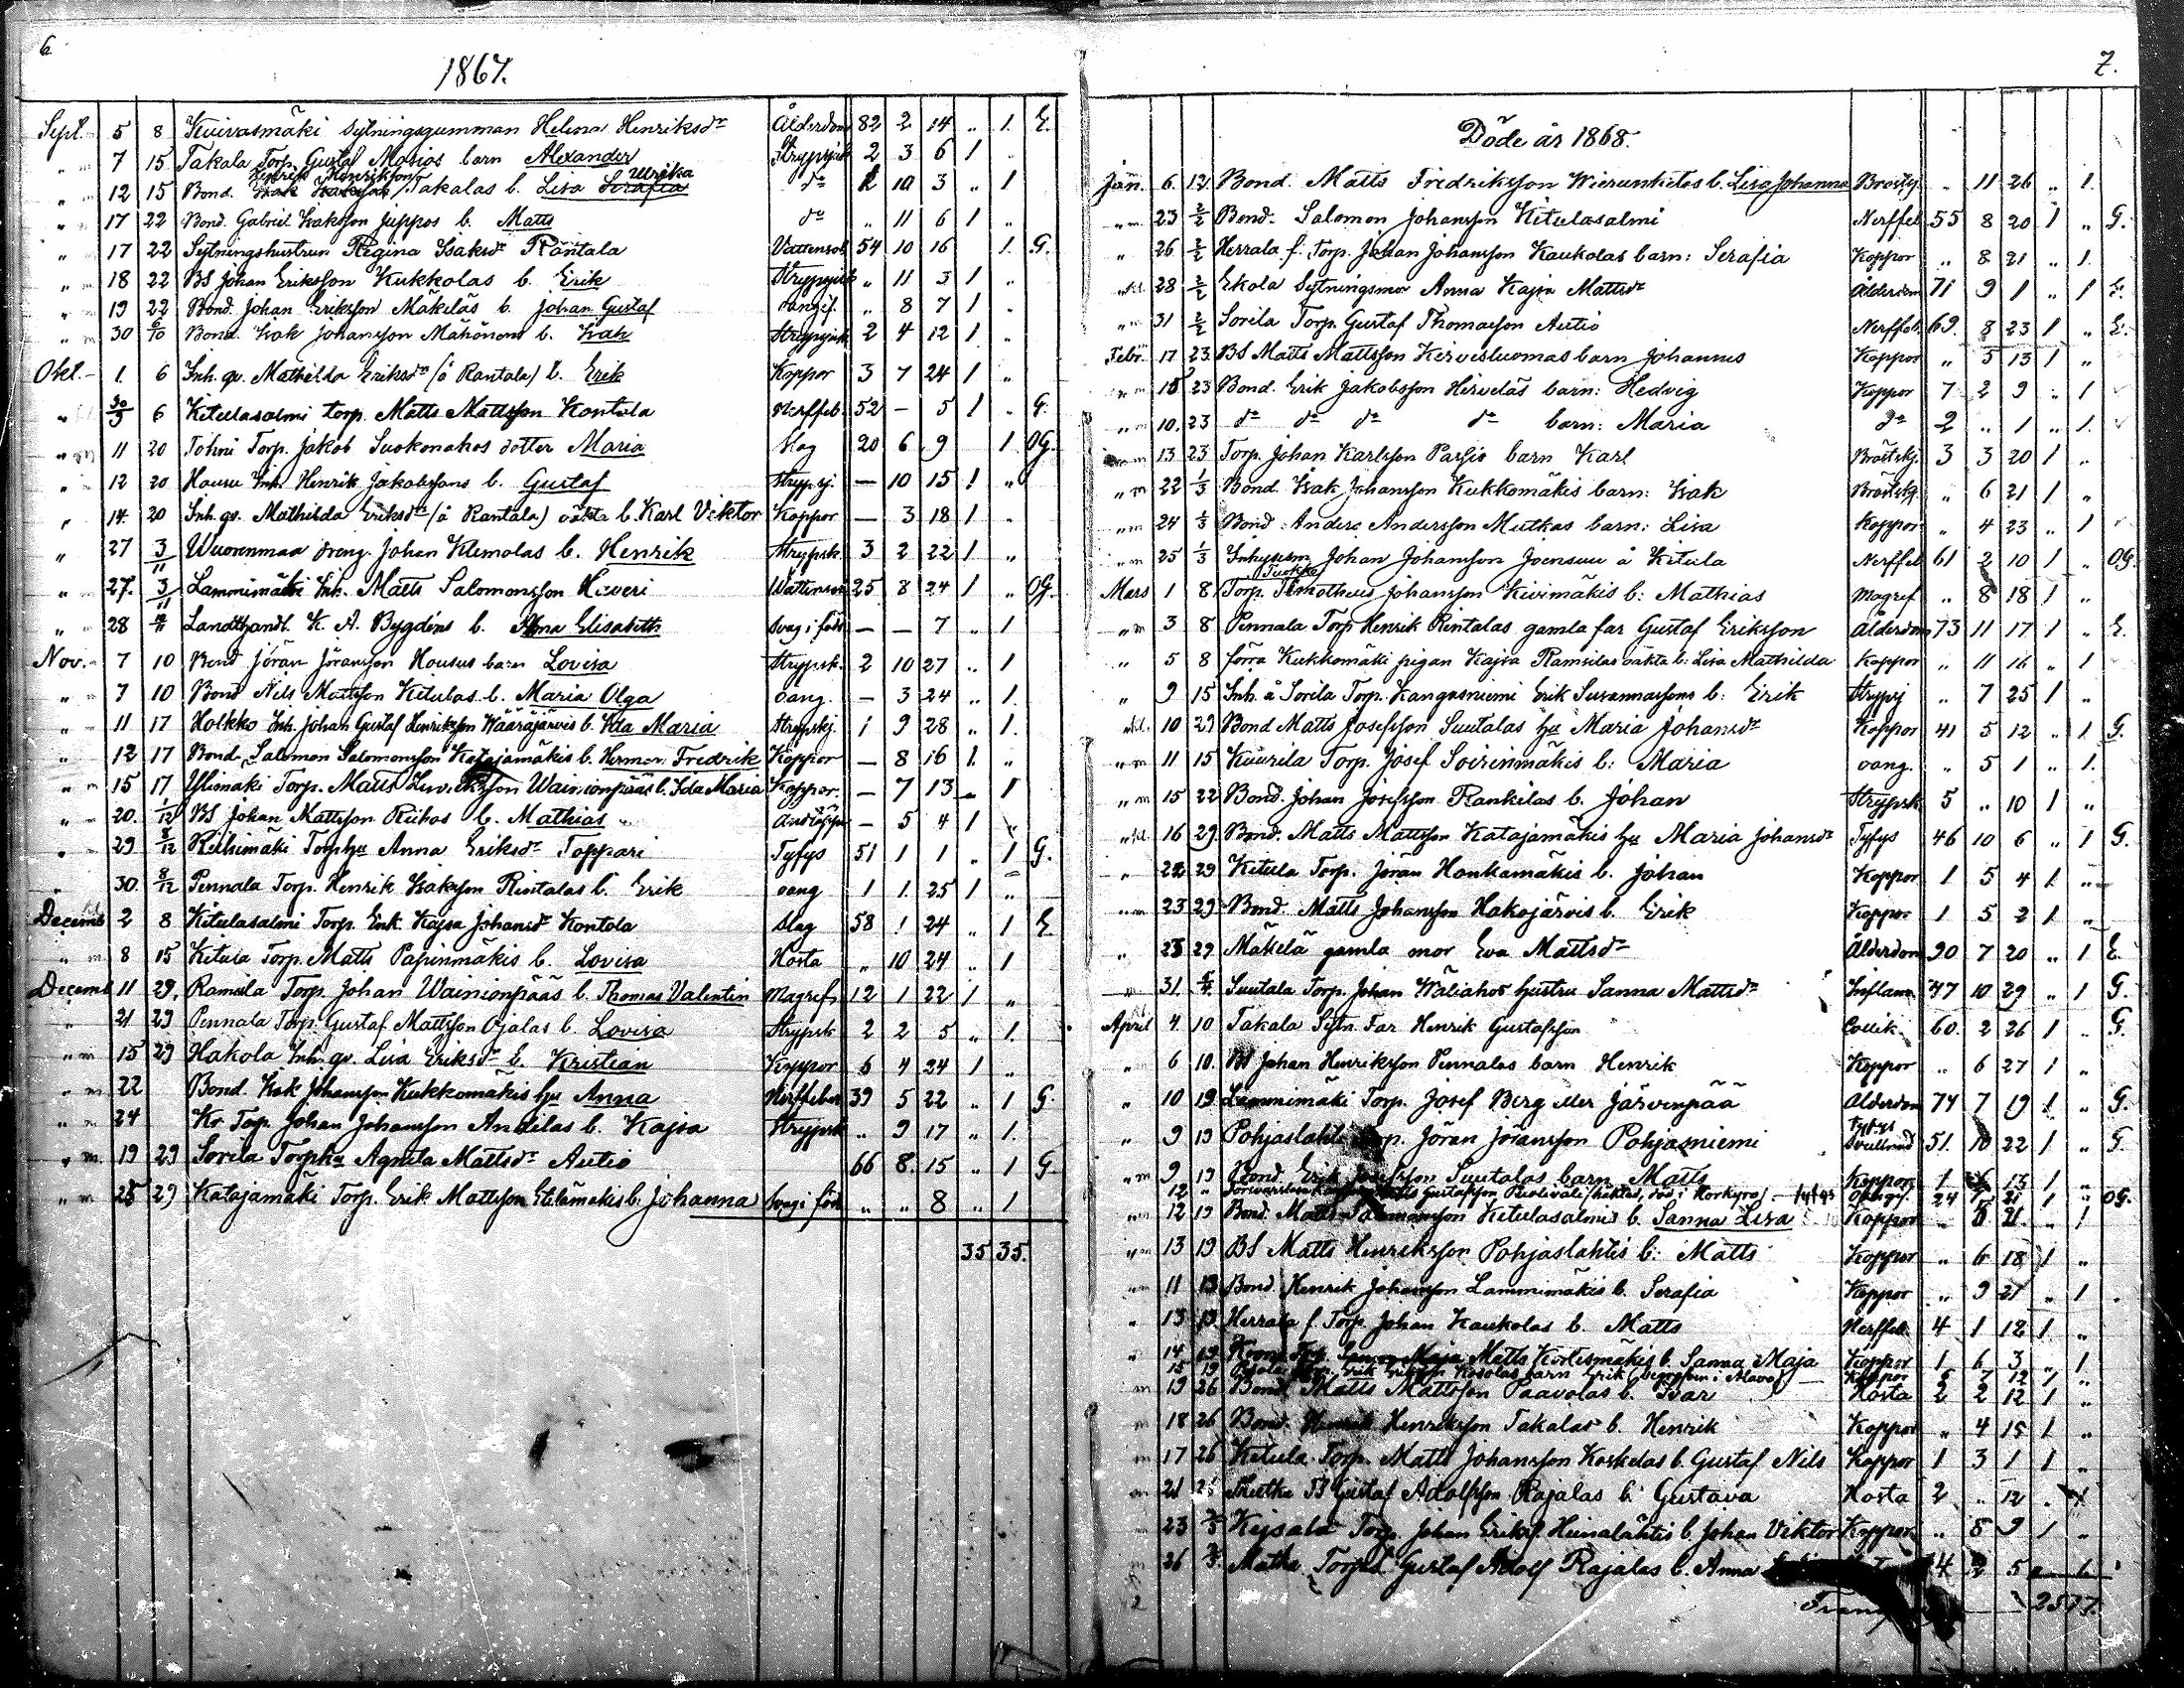 6
1867.
Sept. 5 8 Kuivasmäki Sytningsgumman Helena Henriksdr Ålderdom 82 2 14 „ 1. E.
„ 7 15 Takala Torp. Gustaf Mosias barn Alexander Strypsjuk 2 3 6 1 „
Henrik Henriksson Ulrika
„ 12 15 Bond. Isak Isaksson Takalas b. Lisa Serafia do 2 10 3 „ 1
„ 17 22 Bond. Gabriel Isaksson Juppos b. Matts do „ 11 6 1 „
„ 17 22 Sytningshustrun Regina Isaksdr Rantala Vattensot 54 10 16 1. G.
„ 18 22 BS Johan Eriksson Kukkolas b. Erik Strypsjuk „ 11 3 1 „
„ 19 22 Bond. Johan Eriksson Mäkeläs b. Johan Gustaf oangif. „ 8 7 1 „
„ 30 6/10 Bond. Isak Johansson Mähönens b. Isak Strypsjuk 2 4 12 1 „
Okt. 1. 6 Inh. qv. Mathilda Eriksdr (å Rantala) b. Erik Koppor 3 7 24 1 „
„ 30/9 6 Kitulasalmi torp. Matts Mattsson Kontola Nerffeb. 52 – 5 1 „ G.
„ 11 20 Tohni Torp. Jakob Suokonahos dotter Maria Slag 20 6 9 1 OG.
„ 12 20 Housu Inh. Henrik Jakobssons b. Gustaf Strypsj. – 10 15 1 „
„ 14. 20 Inh. qv. Mathilda Eriksdr (å Rantala) oäkta b. Karl Viktor Koppor – 3 18 1 „
„ 27 3/11 Wuorenmaa dreng. Johan Klemolas b. Henrik Strypsk. 3 2 22 1 „
„ 27. 3/11 Lammimäki Inh. Matts Salomonsson Haveri Wattensot 25 8 24 1 „ OG.
„ 28 Landthandl. K. A. Bygdéns b. Anna Elisabeth Svag i föds – – 7 „ 1
Nov. 7 10 Bond Jöran Jöransson Housus barn Lovisa Strypsk. 2 10 27 „ 1
„ 7 10 Bond Nils Mattsson Kitulas b. Maria Olga oang. – 3 24 „ 1.
„ 11 17 Holkko Inh. Johan Gustaf Henriksson Wääräjärvis b. Ida Maria Strypskj. 1 9 28 „ 1.
„ 12 17 Bond. Salomon Salomonsson Katajamäkis b. Herman Fredrik Koppor – 8 16 1. „
„ 15 17 Ylimäki Torp. Matts Wainionpääs b. Ida Maria Koppor. – 7 13 „ 1
„ 20. 1/12 BS Johan Mattsson Riihos b. Mathias – 5 4 1 „
„ 29 8/12 Riihimäki Torphu Anna Eriksdr Toppari Tyfys 51 1 1 „ 1 G.
„ 30. 8/12 Pennala Torp. Henrik Isaksson Rintalas b. Erik oang 1 1. 25 1 „
Decemb 2 8 Kitulasalmi Torp. Enk. Kajsa Johansdr Kontola Slag 58 1 24 „ 1 E.
„ 8 15 Kitula Torp. Matts Papinmäkis b. Lovisa Hosta „ 10 24 „ 1
Decemb 11 29. Ramsila Torp. Johan Wainionpääs b. Thomas Valentin Magref. 12 1 22 1 „
„ 21 29 Pennala Torp. Gustaf Mattsson Ojalas b. Lovisa Strypsk 2 2 5 „ 1.
„ 15 29 Hakola Inh. qv. Lisa Eriksdr b. Kristian Koppor 6 4 24 1 „
„ 22 Bond. Isak Johansson Kukkomäkis hu Anna Nerffeber 39 5 22 „ 1 G.
„ 24 Kr. Torp. Johan Johansson Andilas b. Kajsa Strypsk „ 9 17 „ 1.
„ 19 29 Sorila Torphu Agneta Mattsdr Autio 66 8. 15 „ 1 G.
„ 25 29 Katajamäki Torp. Erik Mattsson Etelämäkis b. Johanna Svag i föds „ „ 8 „ 1
35 35.
7.
Döde år 1868.
Jan. 6. 12 Bond. Matts Fredriksson Wierunketos b. Lisa Johanna Bröstsj. „ 11 26 „ 1.
„ 23 2/2 Bond. Salomon Johansson Kitulasalmi Nerffeb 55 8 20 1 „ G.
„ 26 2/2 Herrala f. Torp. Johan Johansson Kaukolas barn: Serafia Koppor „ 8 21 „ 1.
28 2/2 Ekola Sytningsmor Anna Kajsa Mattsdr Ålderdom 71 9 1 „ 1 E.
„ 31 2/2 Sorila Torp. Gustaf Thomasson Autio Nerffeb. 69. 8 23 1 „ E.
Febr. 17 23 BS Matts Mattsson Kirvesluomas barn Johannes Koppor „ 5 13 1 „
„ 15 23 Bond. Erik Jakobsson Hirveläs barn: Hedvig Koppor 7 2 9 „ 1
„ 10. 23 do do do do barn: Maria do 2 „ 1 „ 1.
13 23 Torp. Johan Karlsson Parsio barn Karl Bröstskj. 3 3 20 1 „
„ 22 1/3 Bond. Isak Johansson Kukkomäkis barn: Isak Bröstskj. „ 6 21 1 „
„ 24 1/3 Bond. Anders Andersson Mutkas barn: Lisa Koppor „ 4 23 „ 1
„ 25 1/3 Inhysesm. Johan Johansson Joensuu å Kitula Nerffeb 61 2 10 1 „ OG.
Tuokko
Mars 1 8 Torp. Timotheus Johansson Kivimäkis b: Mathias Magref „ 8 18 1 „
„ 3 8 Pennala Torp Henrik Rintalas gamla far Gustaf Eriksson Ålderdom 73 11 17 1 „ E.
„ 5 8 förra Kukkomäki pigan Kajsa Ramsilas oäkta b: Lisa Mathilda Koppor „ 11 16 „ 1
„ 9 15 Inh. å Sorila Torp. Kangasniemi Erik Susannassons b: Erik Strypsj „ 7 25 1 „
10 29 Bond Matts Josefsson Suutalas hu Maria Johansdr Koppor 41 5 12 „ 1 G.
„ 11 15 Kuurila Torp. Josef Soirinmäkis b: Maria oang. „ 5 1 „ 1.
„ 15 22 Bond. Johan Josefsson Rankilas b. Johan Strypsk 5 „ 10 1 „
16 29. Bond. Matts Mattsson Katajamäkis hu Maria Johansdr Tyfys 46 10 6 „ 1 G.
„ 22 29 Kitula Torp. Jöran Honkamäkis b. Johan Koppor 1 5 4 1. „
„ 23 29 Bond. Matts Johansson Hakojärvis b. Erik Koppor 1 5 2 1. „
„ 23 29 Mäkelä gamla mor Eva Mattsdr Ålderdom 90 7 20 „ 1 E.
„ 31. 5/4 Suutala Torp. Johan Wäliahos hustru Sanna Mattsdr Inflam 47 10 29 „ 1 G.
April 4. 10 Takala Sytn. Far Henrik Gustafsson Collik. 60. 2 26 1 „ G.
„ 6 10. BS Johan Henriksson Pennalas barn Henrik Koppor „ 6 27 1 „
„ 10 19 Lamminmäki Torp. Josef Berg eller Järvenpää Ålderdom 74 7 19 1 „ G.
Tyfys
„ 9 19 Pohjaslahti Torp. Jöran Jöransson Pohjasniemi 51. 10 22 1 „ G.
„ 9 19 Bond. Erik Josefsson Suutalas barn Matts Koppor 1 6 13 1 „
12 „ Matts Gustafsson (häktad, död i Storkyro) 24 21 1 „ OG.
„ 12 19 Bond. Matts Salomonsson Kitulasalmis b. Sanna Lisa Koppor „ 8 21 „ 1
„ 13 19 BS Matts Henriksson Pohjaslahtis b: Matts Koppor „ 6 18 1 „
„ 11 19 Bond. Henrik Johansson Lammimäkis b. Serafia Koppor „ 9 27 „ 1
„ 13 19. Herrala f. Torp. Johan Kaukolas b. Matts Nerffeb. 4 1 12 1 „
„ 14 19 Torp. Matts Kortesmäkis b. Sanna Maja Koppor 1 6 3 „ 1
15 19 Erik Eriksson barn Erik Koppor 5 7 12 1 „
19 26 Bond. Matts Mattsson Paavolas b. Ivar Hosta 2 2 12 1 „
18 26 Bond. Henrik Henriksson Takalas b. Henrik Koppor „ 4 15 1 „
17 26 Kitula Torp. Matts Johansson Koskelas b. Gustaf Nils Koppor 1 3 1 1 „
21 26 Mutka BS Gustaf Adolfsson Rajalas b. Gustava Hosta 2 „ 12 „ 1
23 3/5 Kejsala Torp. Johan Eriksson Heinalahtis b. Johan Viktor Koppor „ 5 9 1 „
26 3/5 Mutka Torp. Gustaf Adolf Rajalas b. Anna 4 2 5 „ 1